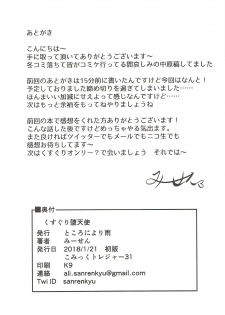 あとがき
こんにちは〜
手に取って頂いてありがとうございます〜
冬コミ落ちて皆がコミケ行ってる間哀しみの中原稿してました
前回のあとがきは15分前に書いたんですけど今回はなんと！
予定しておりました締め切りを過ぎてしまいました…
ほんまいい加減にせえよって感じなんですけど…
次はもっと余裕をもってねやりましょうね
前回の本で感想をくれた方ありがとうございます！
こんな話した後ですけどめっちゃやる気出ます。
また良ければツイッターでもメールでもニコ生でも
感想お待ちしてます〜
次はくすぐりオンリー？で会いましょう　それでは〜
みーせん
■奥付
くすぐり堕天使
発行　ところにより雨
著者　みーせん
発行日　2018/1/21　初版
こみっくトレジャー31
印刷　K9
連絡　ali.sanrenkyu@gmail.com
Twi ID　sanrenkyu